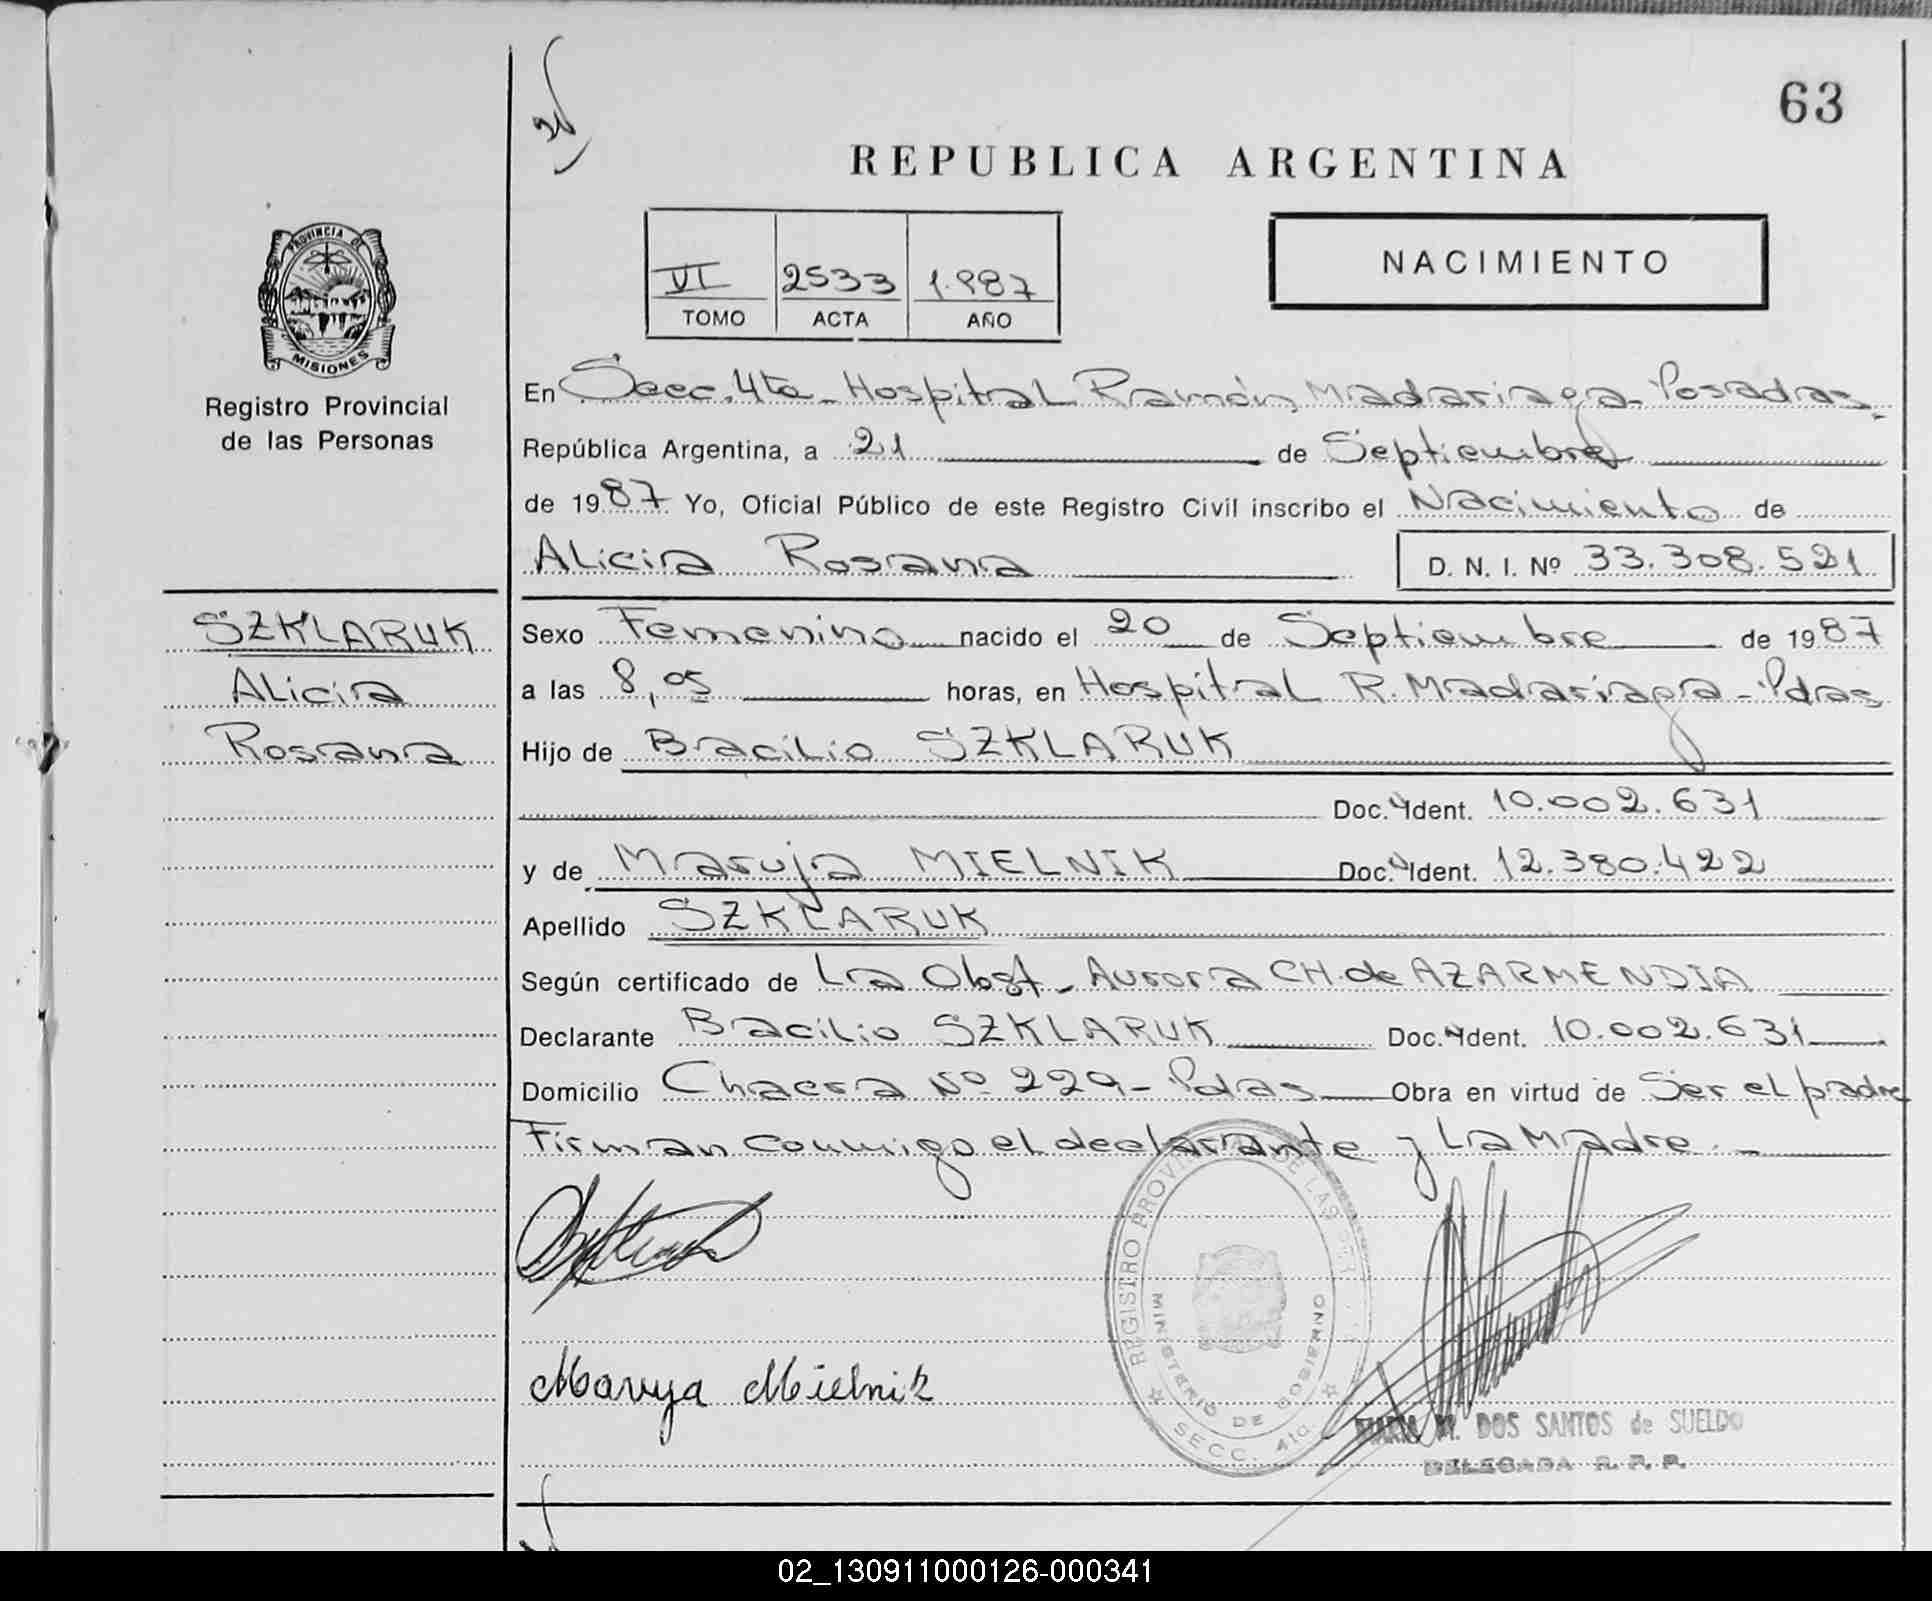 63
REPUBLICA ARGENTINA
NACIMIENTO
VI 2533 1.987
TOMO ACTA AÑO
PROVINCIA DE
MISIONES
Registro Provincial
de las Personas
En Secc. 4ta - Hospital Ramón Madariaga - Posadas -
República Argentina, a 21 de Septiembre
de 1987 Yo, Oficial Público de este Registro Civil inscribo el Nacimiento de
Alicia Rosana D. N. I. Nº 33.308.521
SZKLARUK
Alicia
Rosana
Sexo Femenino nacido el 20 de Septiembre de 1987
a las 8,05 horas, en Hospital R. Madariaga - Pdas
Hijo de Bacilio SZKLARUK
Doc. Ident. 10.002.631
y de Maruja MIELNIK Doc. Ident. 12.380.422
Apellido SZKLARUK
Según certificado de La Obst - Aurora CH. de AZARMENDIA
Declarante Bacilio SZKLARUK Doc. Ident. 10.002.631
Domicilio Chacra Nº 229 - Pdas Obra en virtud de Ser el padre
Firman conmigo el declarante y La Madre. -
Maruja Mielnik
REGISTRO PROVINCIAL DE LAS
MINISTERIO DE GOBIERNO
SECC. 4ta
M. DOS SANTOS de SUELDO
DELEGADA R. P. P.
02_130911000126-000341